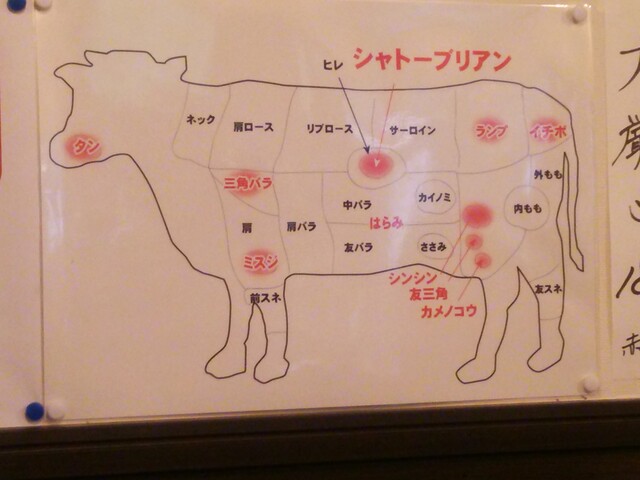 ヒレ
シャトーブリアン
ネック
肩ロース
リブロース
サーロイン
ランプ
イチボ
タン
三角バラ
外もも
中バラ
カイノミ
内もも
はらみ
肩
肩バラ
友バラ
ささみ
ミスジ
シンシン
友三角
カメノコウ
前スネ
友スネ